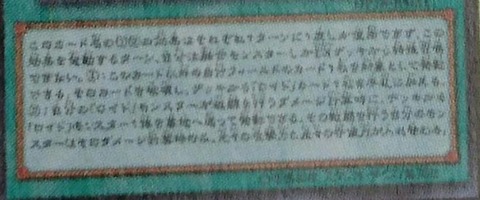 このカード名の①②の効果はそれぞれ1ターンに1度しか使用できず、この
効果を発動するターン、自分は融合モンスターしかEXデッキから特殊召喚
できない。①：このカード以外の自分フィールドのカード1枚を対象として発動
できる。そのカードを破壊し、デッキから「ロイド」カード1枚を手札に加える。
②：自分の「ロイド」モンスターが戦闘を行うダメージ計算時に、デッキから
「ロイド」モンスター1体を墓地へ送って発動できる。その戦闘を行う自分のモン
スターはそのダメージ計算時のみ、元々の攻撃力と元々の守備力が入れ替わる。